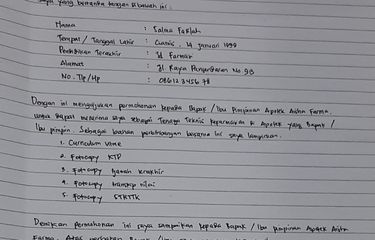 Saya yang bertanda tangan dibawah ini :
Nama : Salma Fadilah
Tempat / Tanggal Lahir : Ciamis, 14 Januari 1999
Pendidikan Terakhir : D3 Farmasi
Alamat : Jl. Raya No. 98
No. Tlp/Hp : 08612345678
Dengan ini mengajukan permohonan kepada Bapak / Ibu Pimpinan Apotek Farma,
untuk dapat menerima saya sebagai Tenaga Teknis Kefarmasian di Apotek yang Bapak /
Ibu pimpin. Sebagai bahan pertimbangan bersama ini saya lampirkan.
1. Curriculum vitae
2. Fotocopy KTP
3. Fotocopy Ijazah terakhir
4. Fotocopy transkrip nilai
5. Fotocopy STRTTK
Demikian permohonan ini saya sampaikan kepada Bapak / Ibu pimpinan Apotek
Farma. Atas perhatian Bapak / Ibu